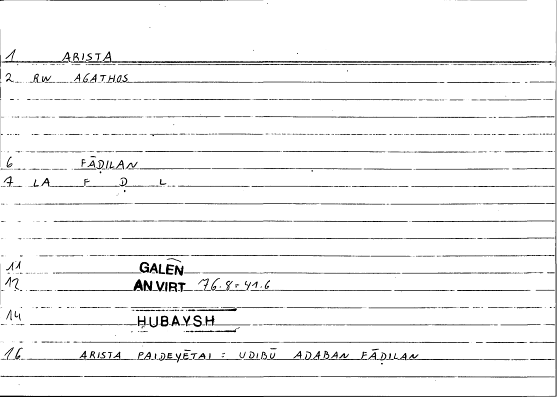 1 ARISTA
2 RW AGATHOS
6 FĀḌILAN
7 LA F Ḍ L
11 GALEN
12 AN VIRT 76.8 = 41.6
14 HUBAYSH
16 ARISTA PAIDEYĒTAI = UDIBŪ ADABAN FĀḌILAN